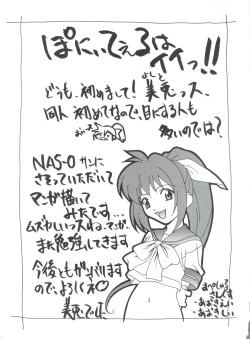 ぽにいてえるは
イイっ!!
どうも、初めまして!美兎っス、
よしと
同人初めてなので、目にする人も
多いのでは?
NAS-Oサンに
さそっていただいて
マンガ描いて
みたです…
ムズかしいっスねェ、マンガ…
また勉強してきます
今後ともがんばります
ので、よろしくネ
美兎でした
さんくす